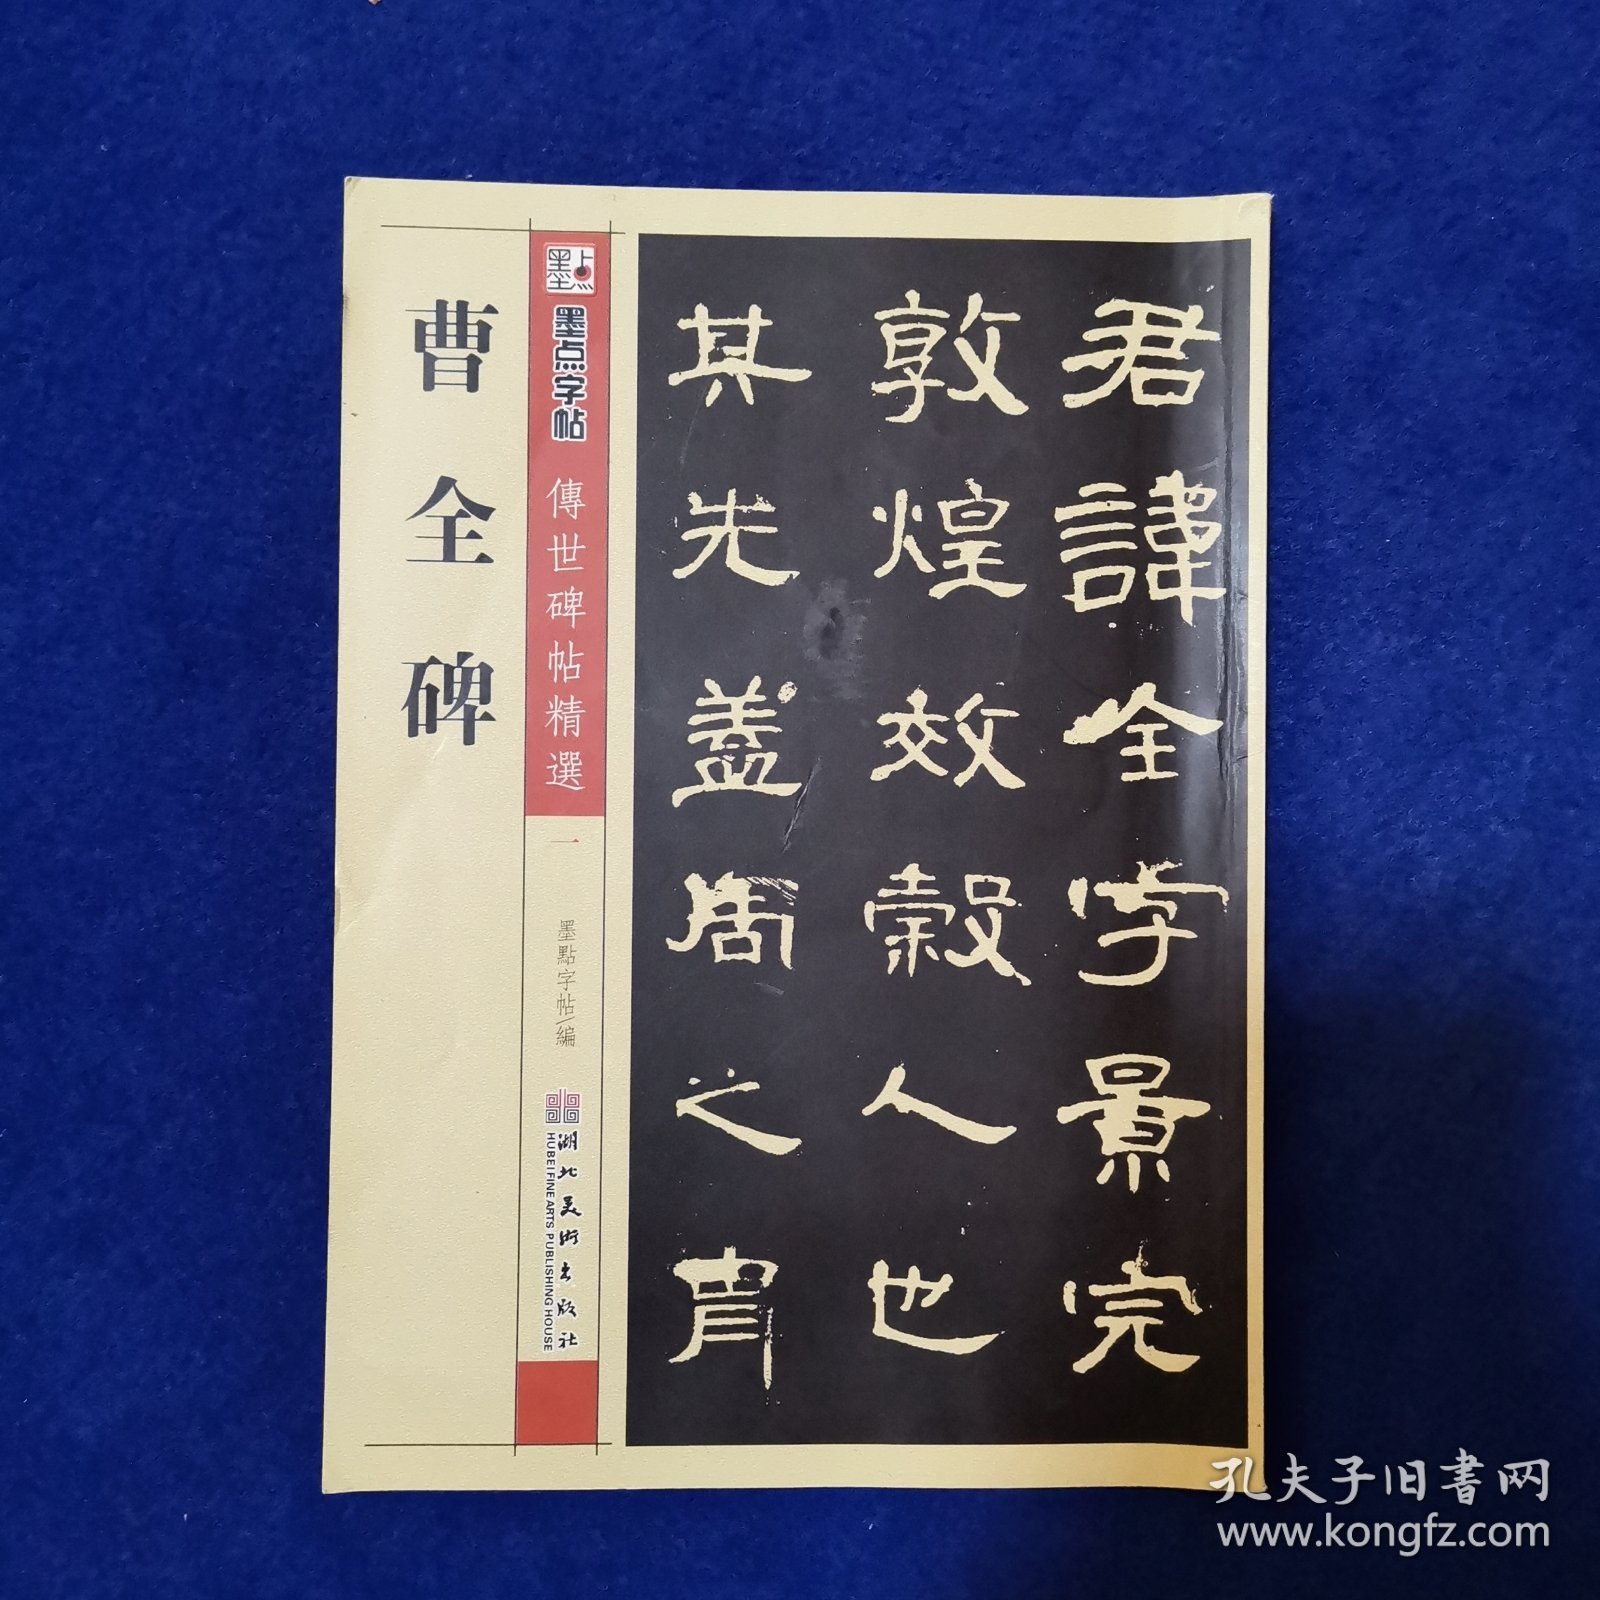 君諱全字景完
敦煌效穀人也
其先蓋周之胄
墨点
墨点字帖
傳世碑帖精選
一
墨點字帖/編
湖北美术出版社
HUBEI FINE ARTS PUBLISHING HOUSE
曹全碑
孔夫子旧书网
www.kongfz.com